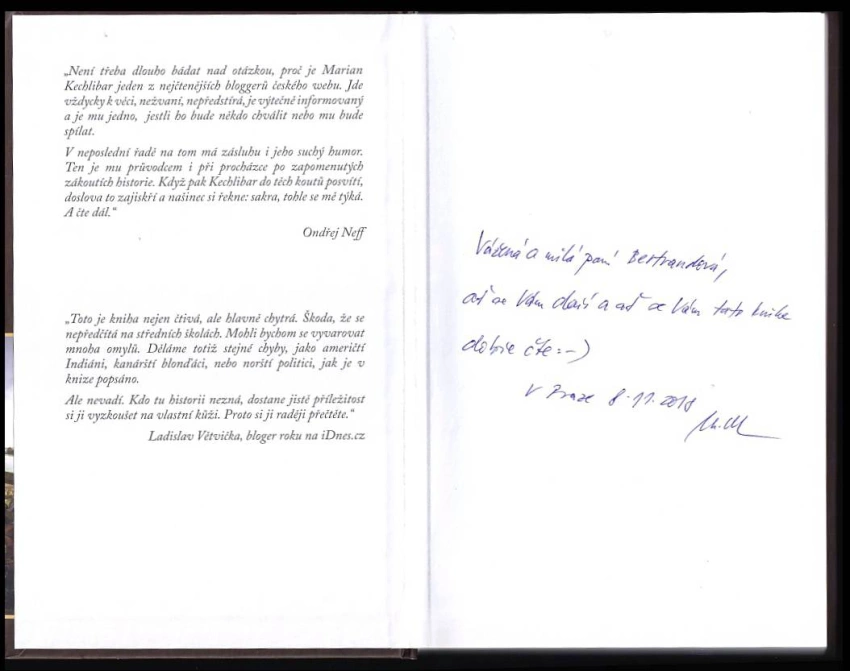 „Není třeba dlouho bádat nad otázkou, proč je Marian
Kechlibar jeden z nejčtenějších bloggerů českého webu. Jde
vždycky k věci, nežvaní, nepředstírá, je výtečně informovaný
a je mu jedno, jestli ho bude někdo chválit nebo mu bude
spílat.
V neposlední řadě na tom má zásluhu i jeho suchý humor.
Ten je mu průvodcem i při procházce po zapomenutých
zákoutích historie. Když pak Kechlibar do těch koutů posvítí,
doslova to zajiskří a našinec si řekne: sakra, tohle se mě týká.
A čte dál.“
Ondřej Neff
„Toto je kniha nejen čtivá, ale hlavně chytrá. Škoda, že se
nepředčítá na středních školách. Mohli bychom se vyvarovat
mnoha omylů. Děláme totiž stejné chyby, jako američtí
Indiáni, kanárští blonďáci, nebo norští politici, jak je v
knize popsáno.
Ale nevadí. Kdo tu historii nezná, dostane jistě příležitost
si ji vyzkoušet na vlastní kůži. Proto si ji raději přečtěte.“
Ladislav Větvička, bloger roku na iDnes.cz
Vážená a milá paní Bertrandová,
ať se Vám daří a ať se Vám tato kniha
dobře čte :-)
V Praze 8.11.2018